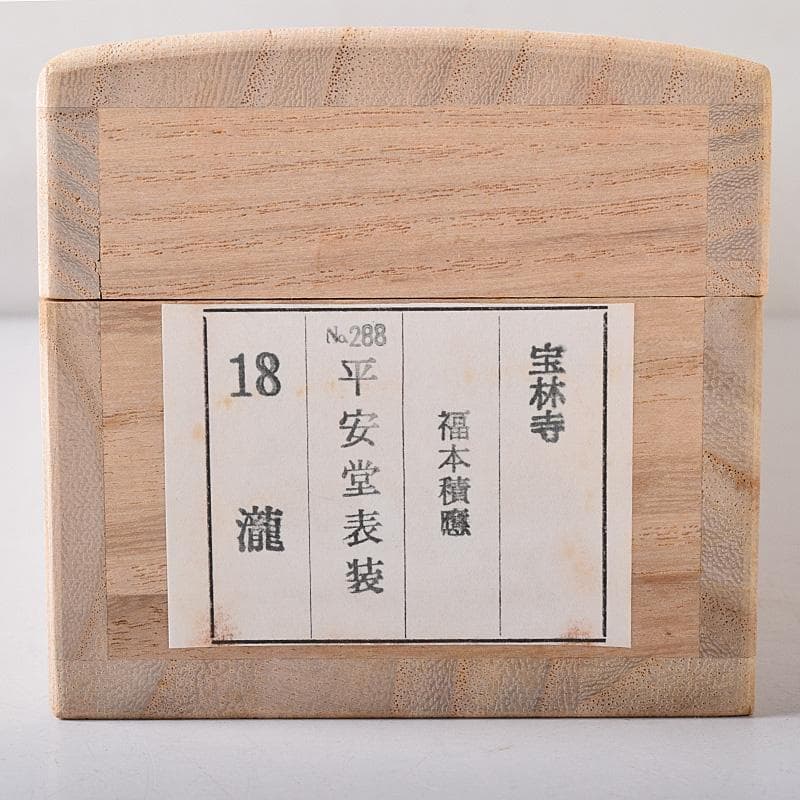 宝林寺
福本積應
No.288
平安堂表装
18 瀧